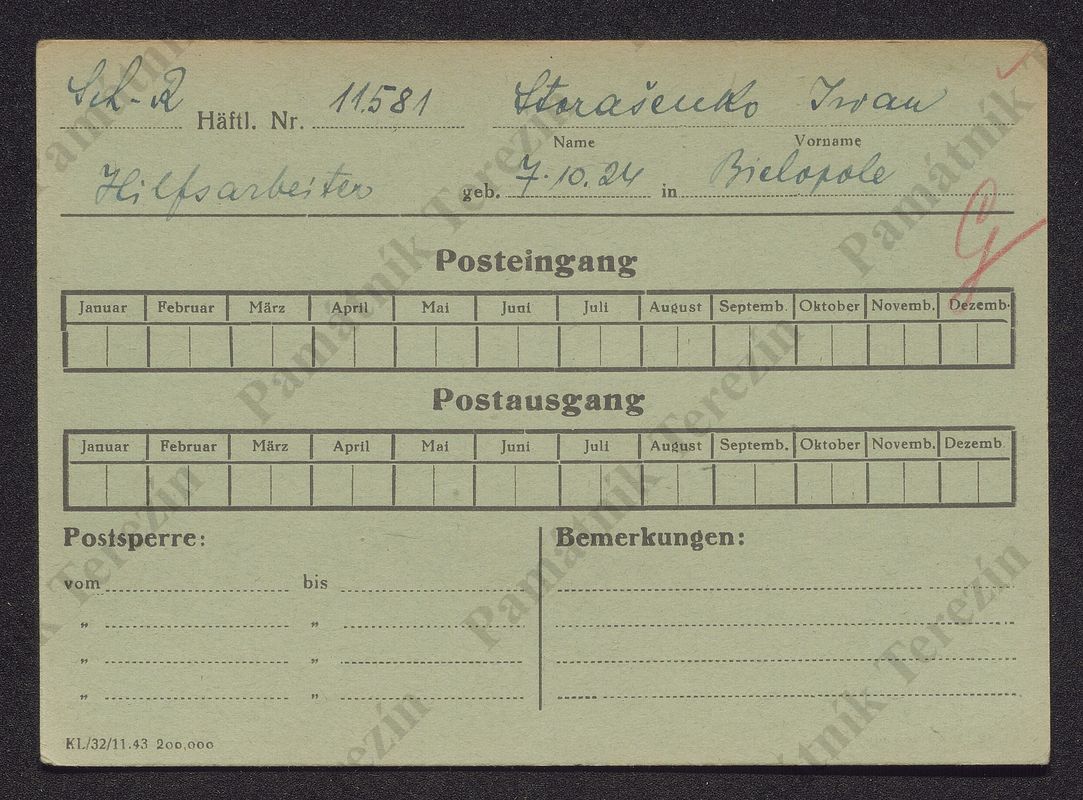 Sch-R Häftl. Nr. 11581 Storašenko Iwan
Name Vorname
Hilfsarbeiter geb. 7.10.24 in Bielopole
Posteingang
Januar Februar März April Mai Juni Juli August Septemb. Oktober Novemb. Dezemb.
Postausgang
Januar Februar März April Mai Juni Juli August Septemb. Oktober Novemb. Dezemb.
Postsperre: Bemerkungen:
vom bis
" "
" "
" "
KL/32/11.43 200,000
Památník Terezín